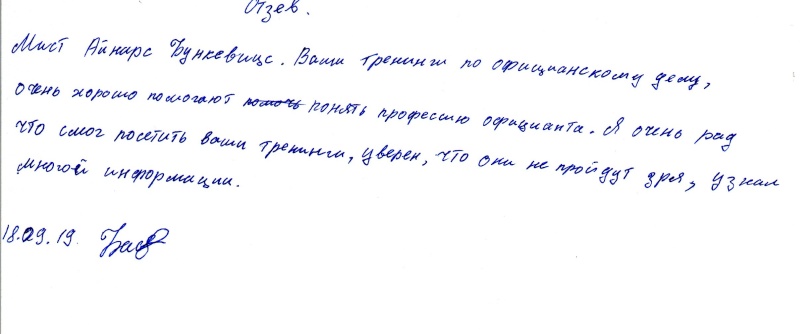 Отзев.
Мист Айнарс Бункевицс. Ваши тренинги по официанскому делу,
очень хорошо помогают помочь понять профессию официанта. Я очень рад
что смог посетить ваши тренинги, уверен, что они не пройдут зря, узнал
многой информации.
18.09.19.